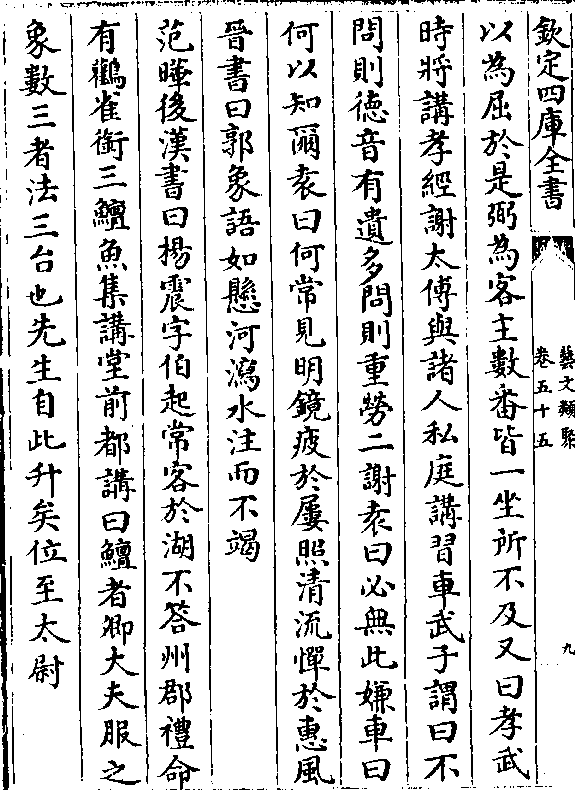 欽定四庫全書
藝文類聚
卷五十五
九
以為屈於是弼為客主數番皆一坐所不及又曰孝武
時將講孝經謝太傅與諸人私庭講習車武子謂曰不
問則德音有遺多問則重勞二謝袁曰必無此嫌車曰
何以知爾袁曰何常見明鏡疲於屢照清流憚於惠風
晉書曰郭象語如懸河瀉水注而不竭
范曄後漢書曰楊震字伯起常客於湖不答州郡禮命
有鸛雀銜三鱣魚集講堂前都講曰鱣者卿大夫服之
象數三者法三台也先生自此升矣位至太尉